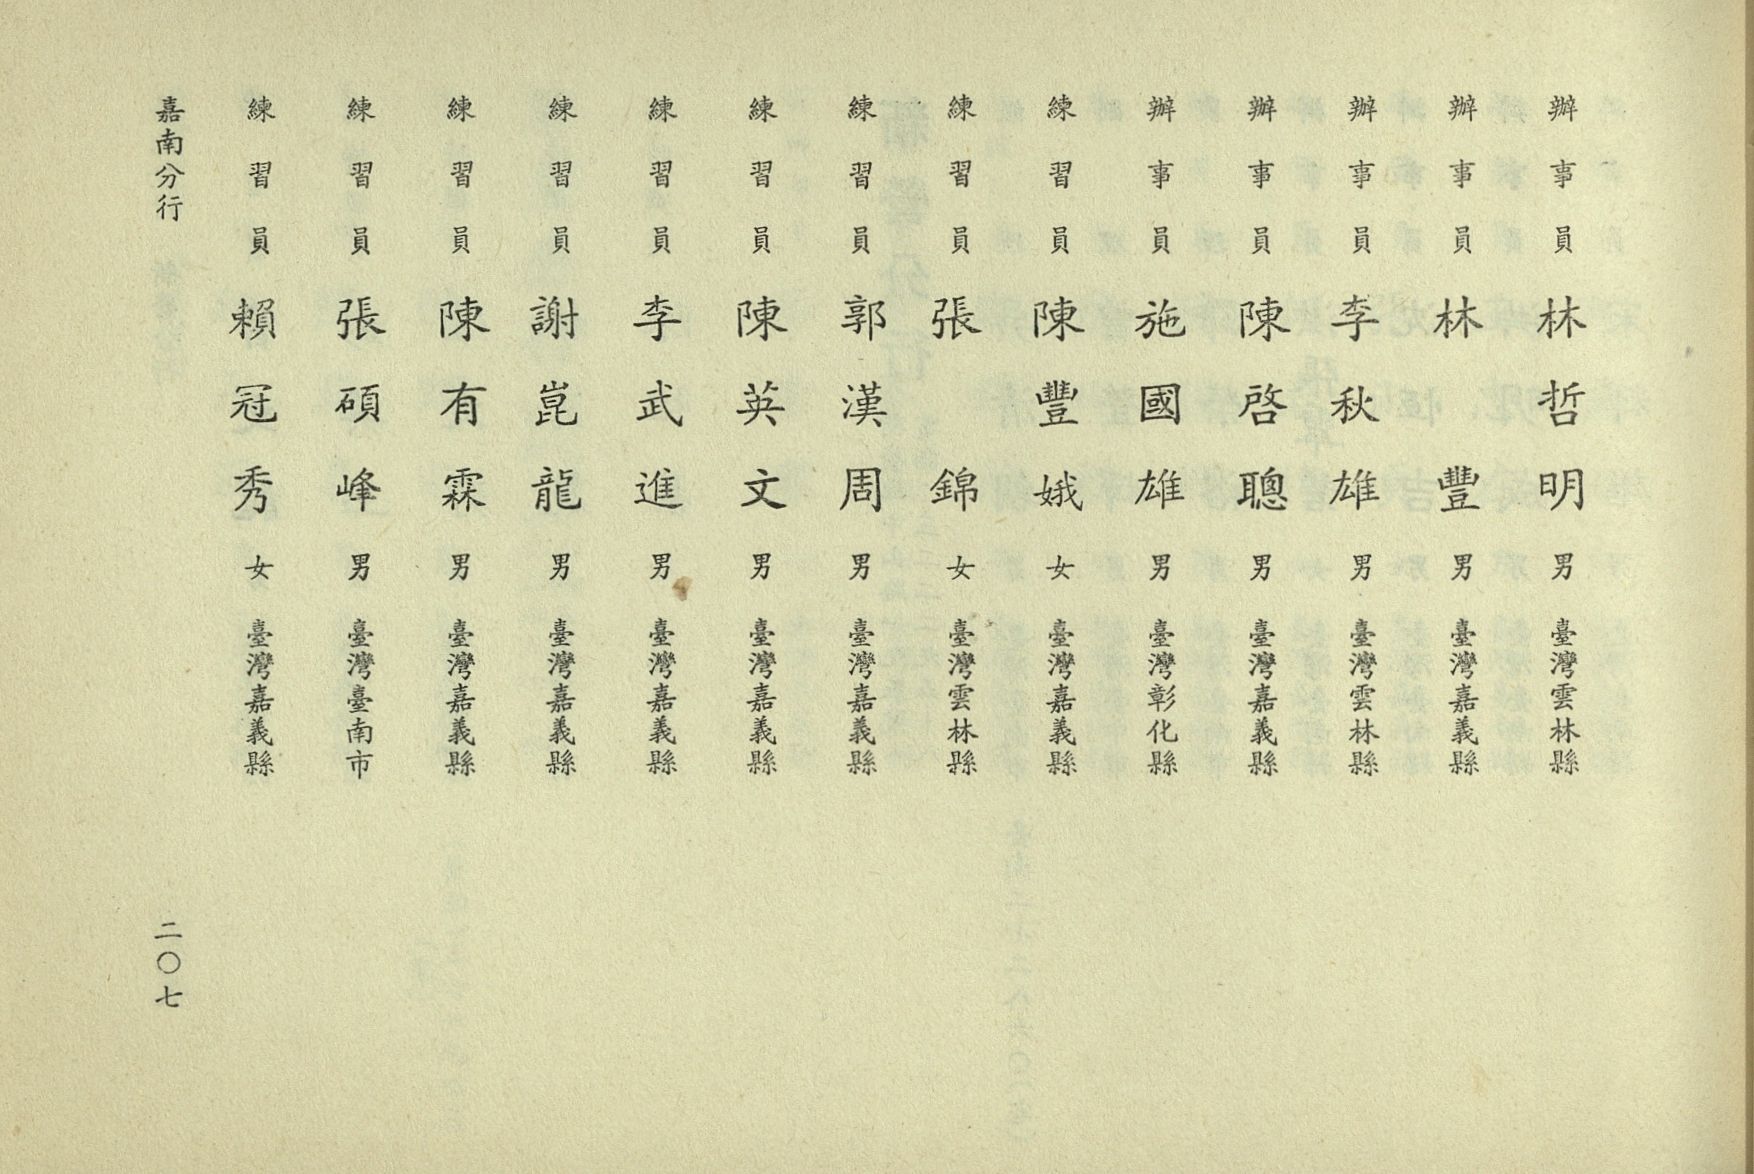 辦事員 林哲明 男 臺灣雲林縣
辦事員 林豐 男 臺灣嘉義縣
辦事員 李秋雄 男 臺灣雲林縣
辦事員 陳啓聰 男 臺灣嘉義縣
辦事員 施國雄 男 臺灣彰化縣
練習員 陳豐娥 女 臺灣嘉義縣
練習員 張錦 女 臺灣雲林縣
練習員 郭漢周 男 臺灣嘉義縣
練習員 陳英文 男 臺灣嘉義縣
練習員 李武進 男 臺灣嘉義縣
練習員 謝崑龍 男 臺灣嘉義縣
練習員 陳有霖 男 臺灣嘉義縣
練習員 張碩峰 男 臺灣臺南市
練習員 賴冠秀 女 臺灣嘉義縣
嘉南分行 二〇七